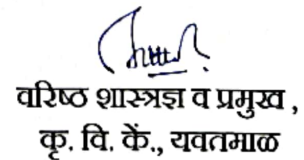 वरिष्ठ शास्त्रज्ञ व प्रमुख ,
कृ. वि. कें., यवतमाळ